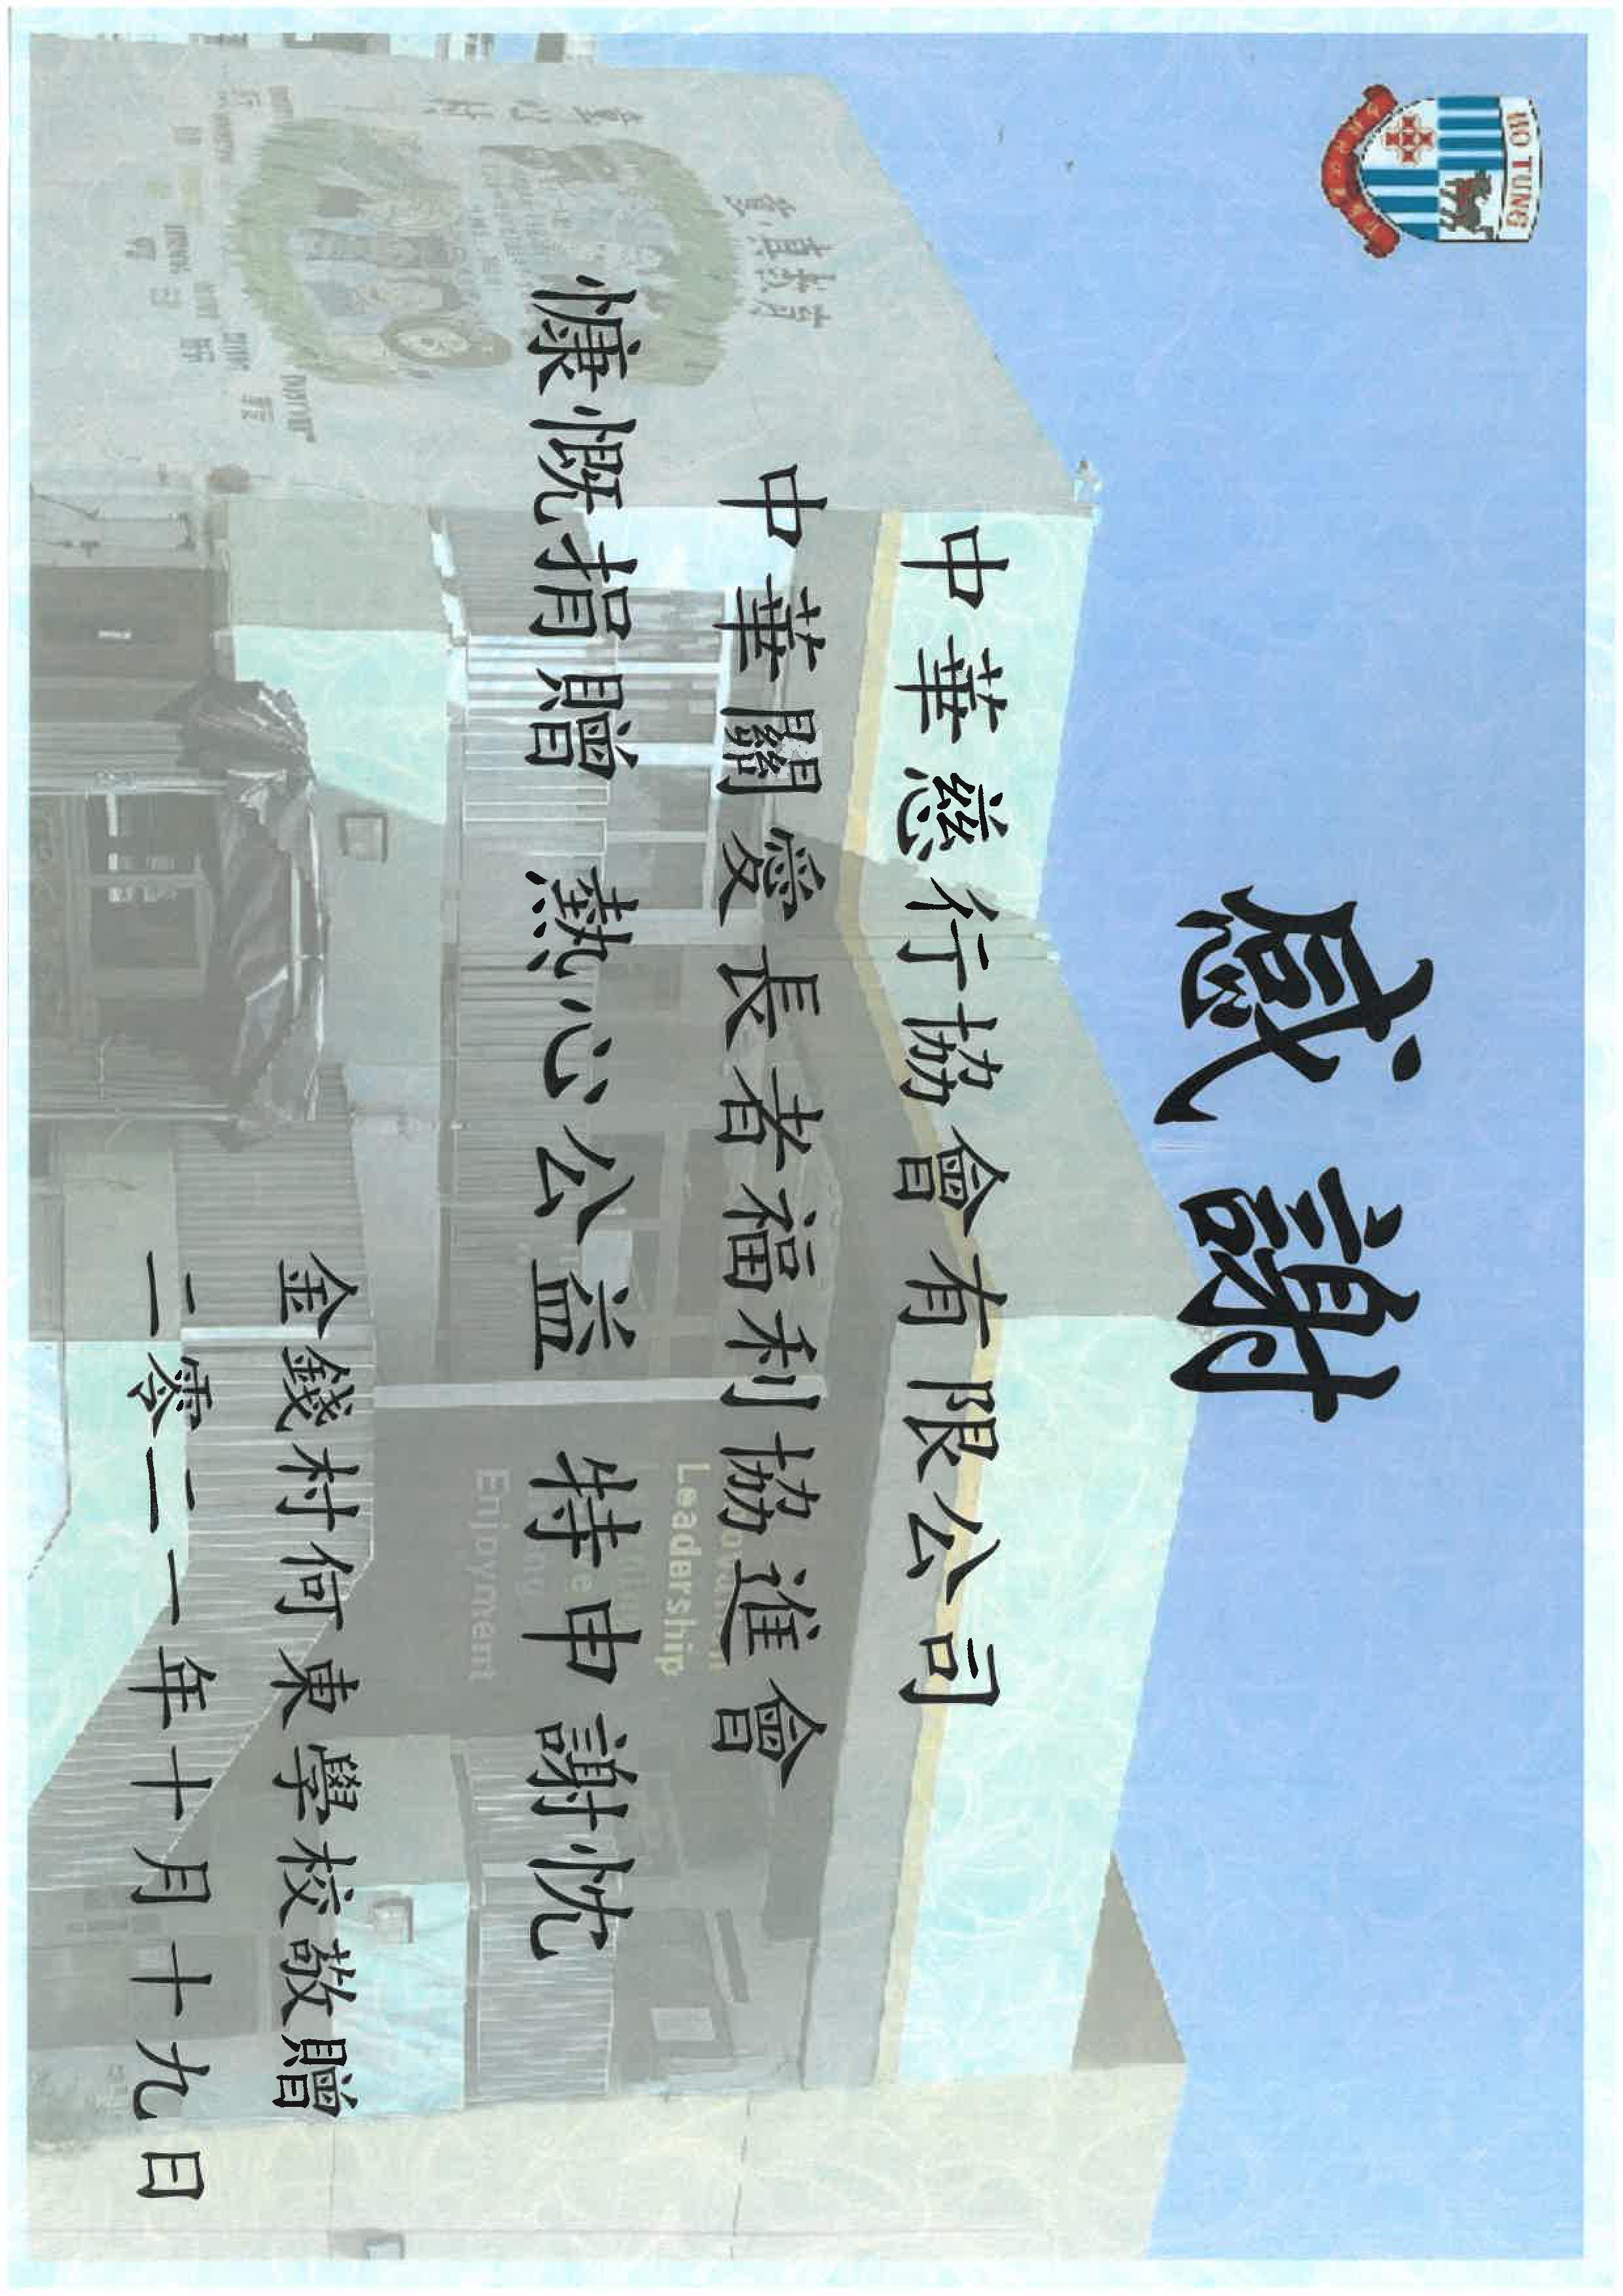 HO TUNG
感謝
中華慈行協會有限公司
中華關愛長者福利協進會
慷慨捐贈 熱心公益 特申謝忱
Leadership
Enjoyment
金錢村何東學校敬贈
二零二一年十月十九日